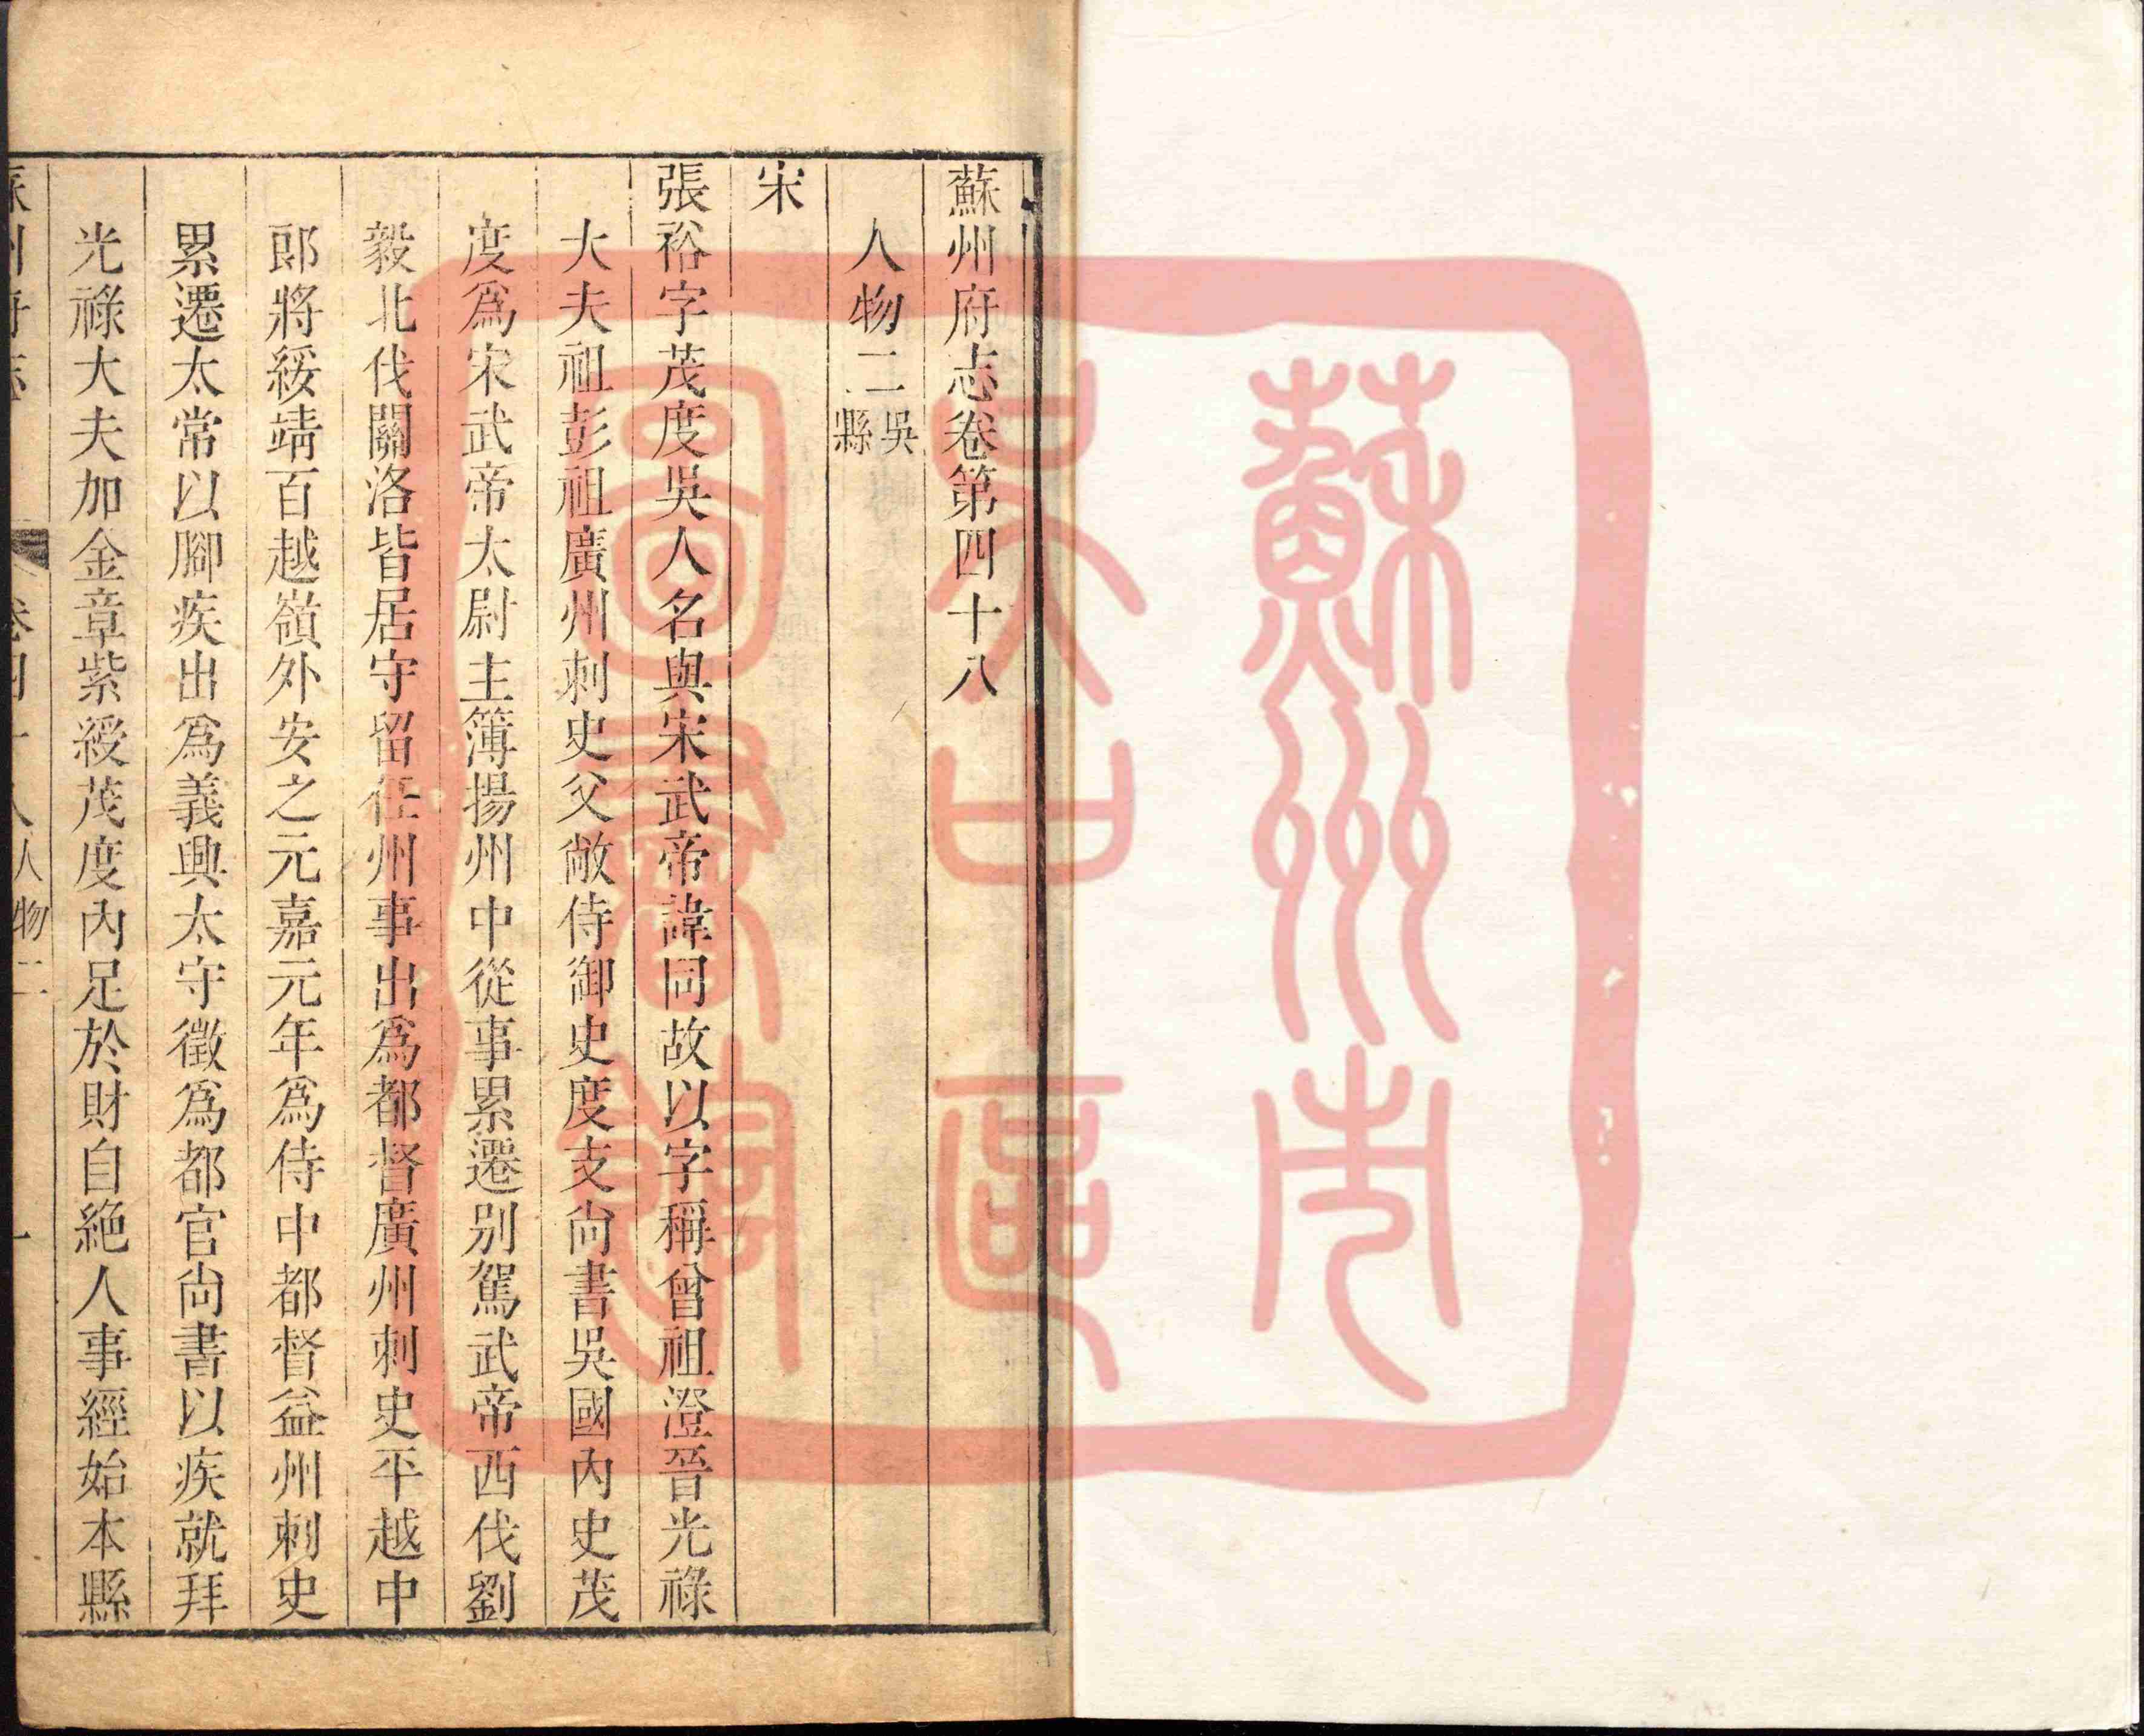 蘇州府志卷第四十八
人物二吳縣
宋
張裕字茂度吳人名與宋武帝諱同故以字稱曾祖澄晉光祿
大夫祖彭祖廣州刺史父敞侍御史度支尚書吳國內史茂
度爲宋武帝太尉主簿揚州中從事累遷別駕武帝西伐劉
毅北伐關洛皆居守留任州事出爲都督廣州刺史平越中
郎將綏靖百越嶺外安之元嘉元年爲侍中都督益州刺史
累遷太常以腳疾出爲義興太守徵爲都官尚書以疾就拜
光祿大夫加金章紫綬茂度內足於財自絶人事經始本縣
人物二
一
蘇州市
吳中區
圖書館